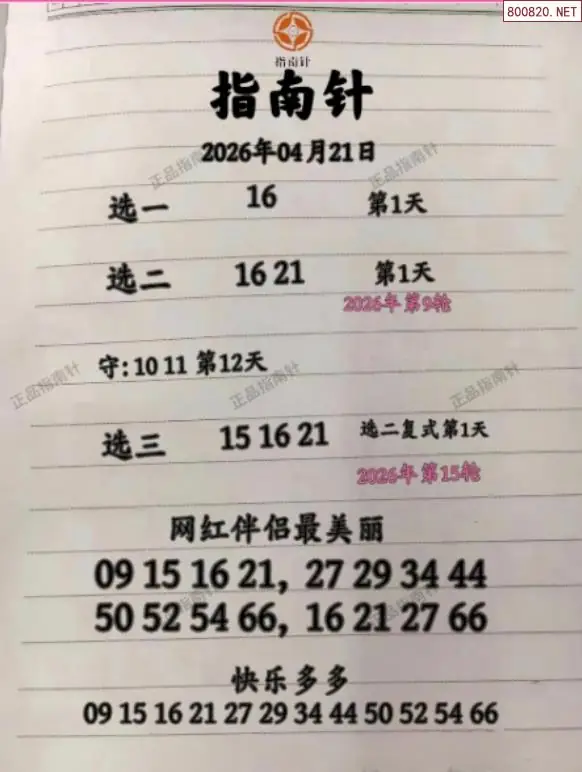 800820.NET
指南针
指南针
2026年04月21日
正品指南针 正品指南针
选一 16 第1天
选二 16 21 第1天
2026年 第9轮
守: 10 11 第12天
正品指南针 正品指南针 正品指南针
选三 15 16 21 选二复式第1天
2026年 第15轮
网红伴侣最美丽
09 15 16 21, 27 29 34 44
50 52 54 66, 16 21 27 66
正品指南针 正品指南针
快乐多多
09 15 16 21 27 29 34 44 50 52 54 66